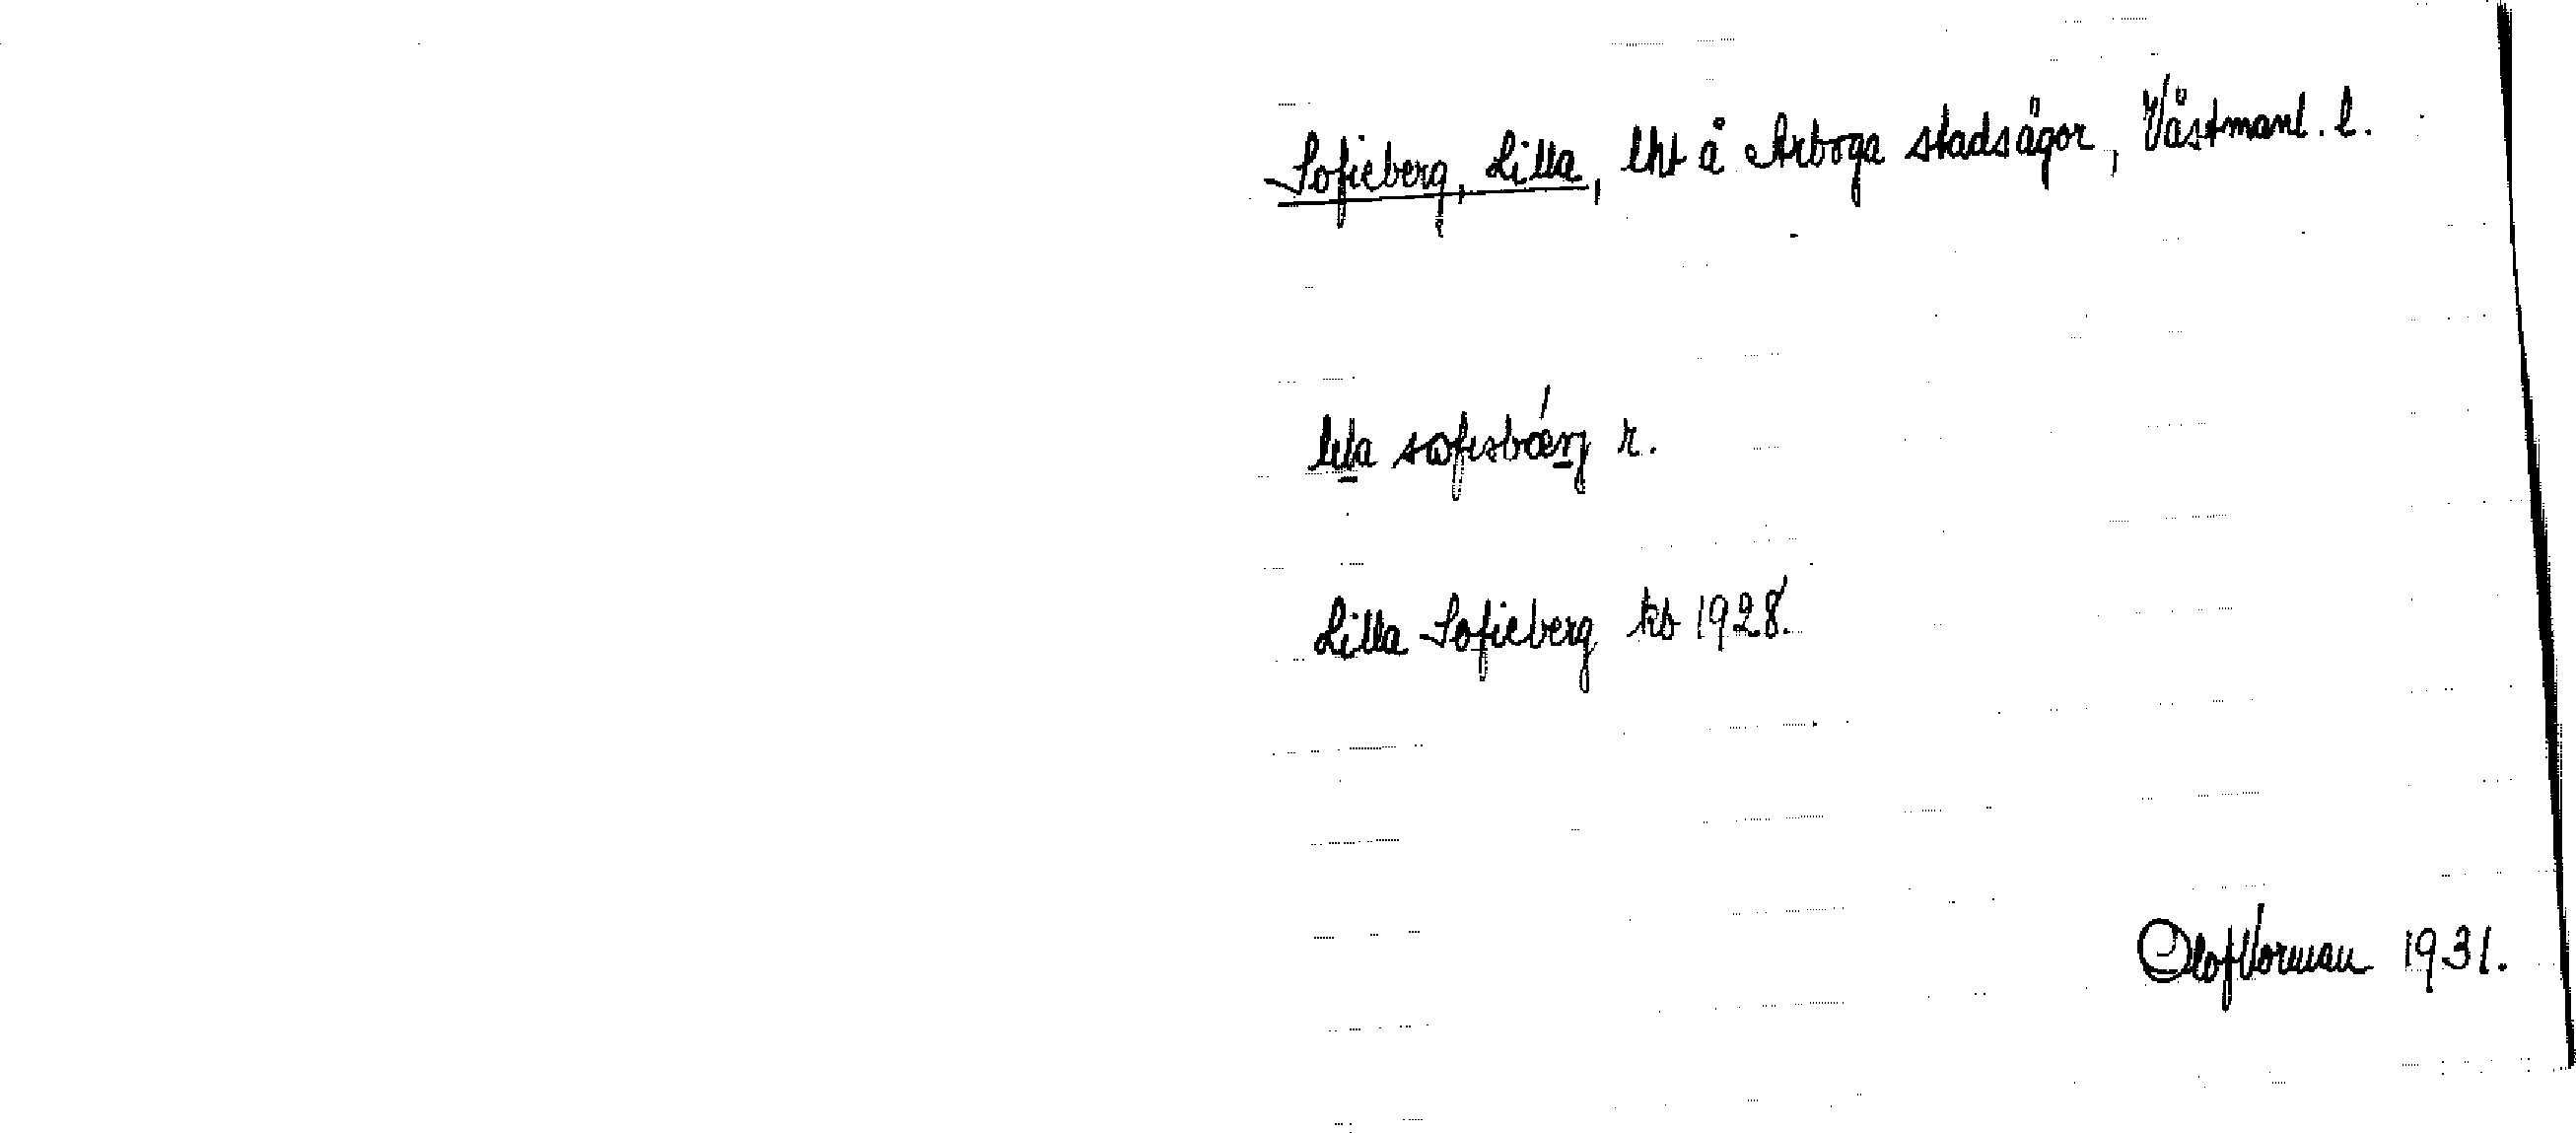 Sofieberg, Lilla, lht å Arboga stadsägor, Västmanl. l.
lila sωfisbærj r.
Lilla Sofieberg kb 1928.
Olof Vorman 1931.